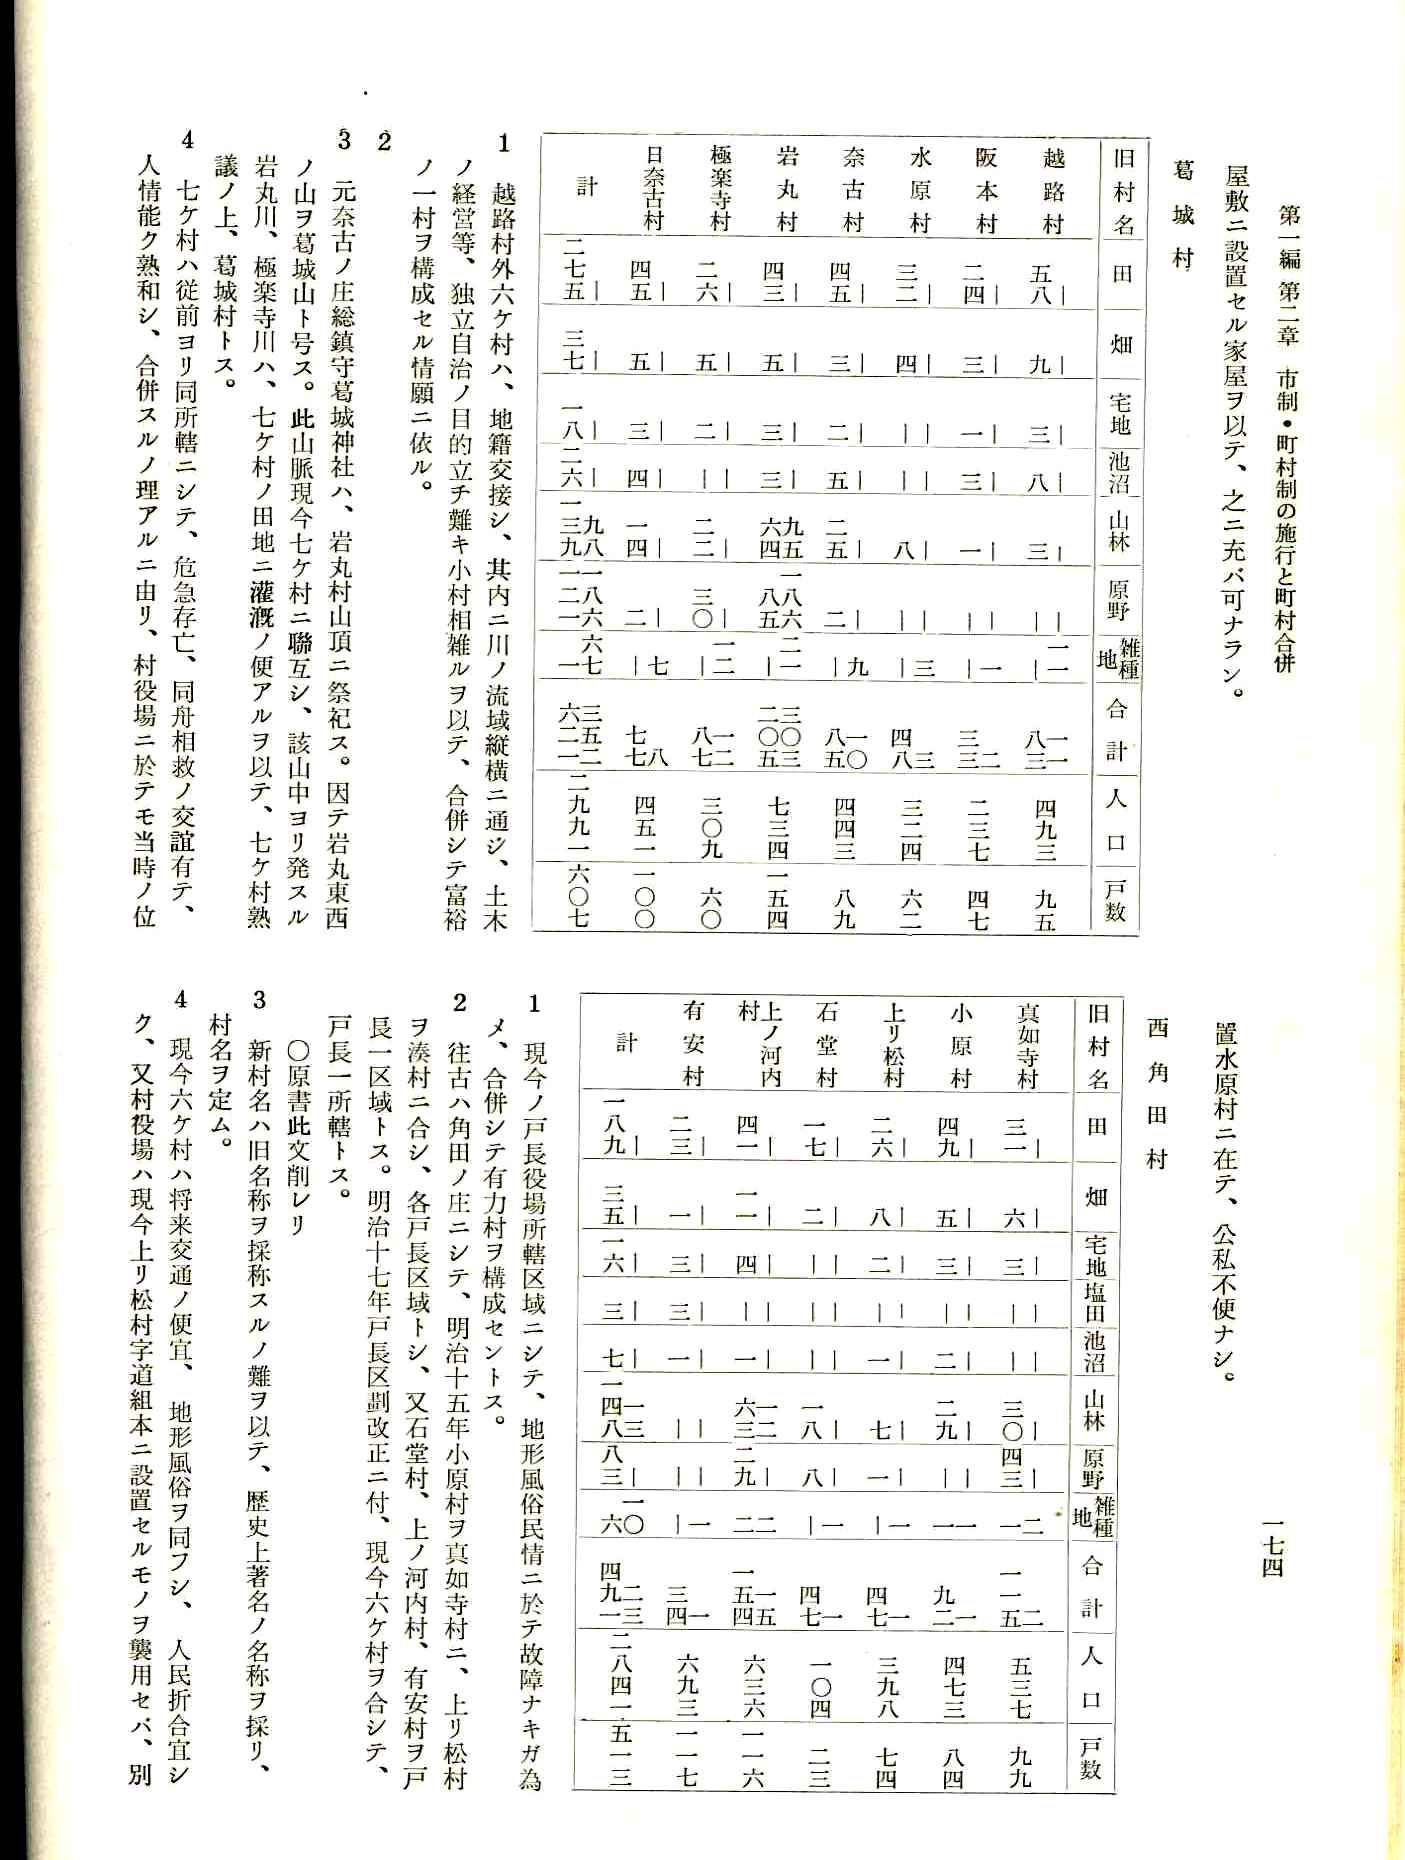 第一編 第二章 市制・町村制の施行と町村合併
一七四
屋敷ニ設置セル家屋ヲ以テ、之ニ充バ可ナラン。
葛城村
旧村名 田 畑 宅地 池沼 山林 原野 雑種地 合計 人口 戸数
越路村 |五八 |九 |三 |八 |三 || 一一| 一一八三 四九三 九五
阪本村 |二四 |三 |一 |三 |一 || 一| 二三三 二三七 四七
水原村 |三二 |四 || || |八 || 三| 三四八 三二四 六二
奈古村 |四五 |三 |二 |五 |二五 |二 九| 一〇八五 四四三 八九
岩丸村 |四三 |五 |三 |三 九五六四 一八六八五 二一| 三〇三二〇五 七三四 一五四
極楽寺村 |二六 |五 |二 || |二二 |三〇 一二| 一二八七 三〇九 六〇
日奈古村 |四五 |五 |三 |四 |一四 |二 七| 八七七 四五一 一〇〇
計 |二七五 |三七 |一八 |二六 九八一三九 一八六一二一 六七一 三五二六二一 二九九一 六〇七
1 越路村外六ケ村ハ、地籍交接シ、其内ニ川ノ流域縦横ニ通ジ、土木
ノ経営等、独立自治ノ目的立チ難キ小村相雑ルヲ以テ、合併シテ富裕
ノ一村ヲ構成セル情願ニ依ル。
2
3 元奈古ノ庄総鎮守葛城神社ハ、岩丸村山頂ニ祭祀ス。因テ岩丸東西
ノ山ヲ葛城山ト号ス。此山脈現今七ケ村ニ聯互シ、該山中ヨリ発スル
岩丸川、極楽寺川ハ、七ケ村ノ田地ニ灌漑ノ便アルヲ以テ、七ケ村熟
議ノ上、葛城村トス。
4 七ケ村ハ従前ヨリ同所轄ニシテ、危急存亡、同舟相救ノ交誼有テ、
人情能ク熟和シ、合併スルノ理アルニ由リ、村役場ニ於テモ当時ノ位
置水原村ニ在テ、公私不便ナシ。
西角田村
旧村名 田 畑 宅地 塩田 池沼 山林 原野 雑種地 合計 人口 戸数
真如寺村 |三一 |六 |三 || || |三〇 |四三 二一 二一一五 五三七 九九
小原村 |四九 |五 |三 || |二 |二九 || 一一 一九二 四七三 八四
上リ松村 |二六 |八 |二 || |一 |七 |一 一| 一四七 三九八 七四
石堂村 |一七 |二 || || || |一八 |八 一| 一四七 一〇四 二三
上ノ河内村 |四一 |一一 |四 || |一 一二六三 |二九 二二 一五一五四 六三六 一一六
有安村 |二三 |一 |三 |三 |一 || || 一| 一三四 六九三 一一七
計 |一八九 |三五 |一六 |三 |七 一三一四八 |八三 一〇六 二三四九一 二八四一 五一三
1 現今ノ戸長役場所轄区域ニシテ、地形風俗民情ニ於テ故障ナキガ為
メ、合併シテ有力村ヲ構成セントス。
2 往古ハ角田ノ庄ニシテ、明治十五年小原村ヲ真如寺村ニ、上リ松村
ヲ湊村ニ合シ、各戸長区域トシ、又石堂村、上ノ河内村、有安村ヲ戸
長一区域トス。明治十七年戸長区劃改正ニ付、現今六ケ村ヲ合シテ、
戸長一所轄トス。
〇原書此文削レリ
3 新村名ハ旧名称ヲ採称スルノ難ヲ以テ、歴史上著名ノ名称ヲ採リ、
村名ヲ定ム。
4 現今六ケ村ハ将来交通ノ便宜、地形風俗ヲ同フシ、人民折合宜シ
ク、又村役場ハ現今上リ松村字道組本ニ設置セルモノヲ襲用セバ、別